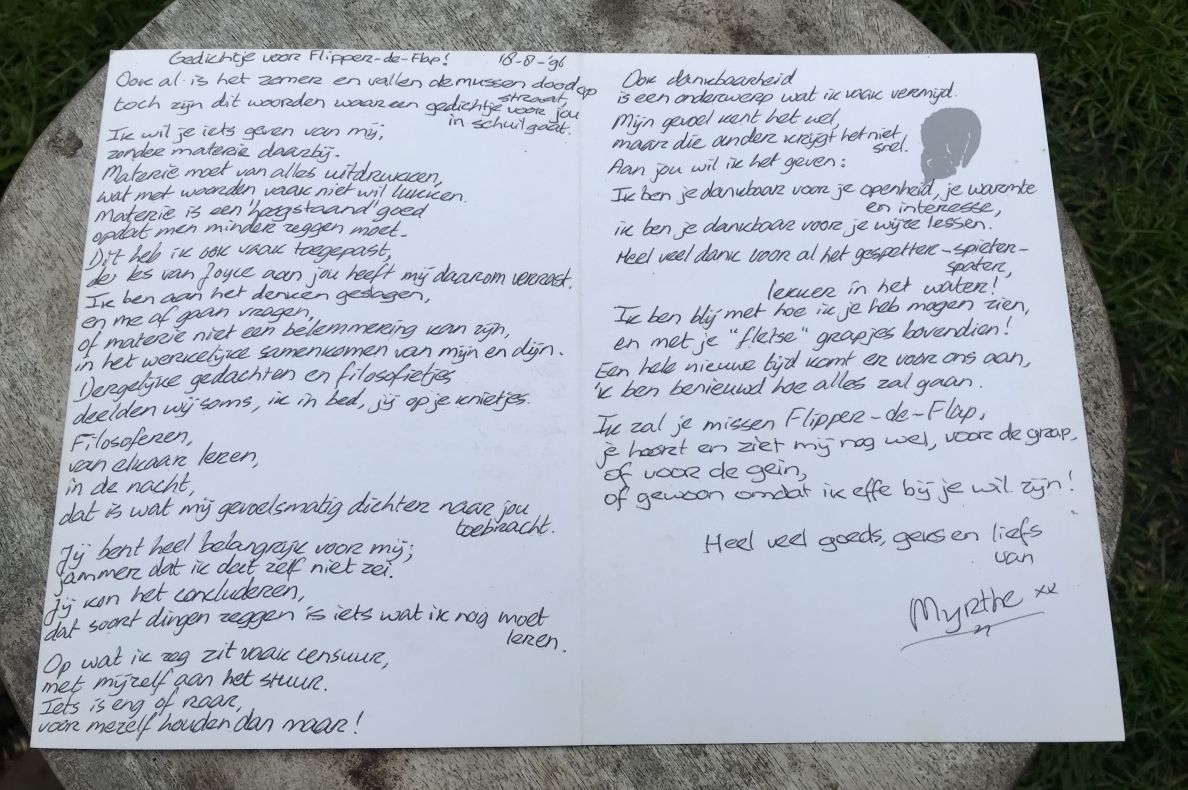 Gedichtje voor Flipper-de-Flap! 18-8-'96
Ook al is het zomer en vallen de mussen dood op
straat,
toch zijn dit woorden waar een gedichtje voor jou
in schuil gaat.
Ik wil je iets geven van mij,
zonder materie daarbij.
Materie moet van alles uitdrukken,
wat met woorden vaak niet wil lukken.
Materie is een 'hoogstaand' goed
opdat men minder zeggen moet.
Dit heb ik ook vaak toegepast,
de les van Joyce aan jou heeft mij daarom verrast.
Ik ben aan het denken geslagen,
en me af gaan vragen,
of materie niet een belemmering kan zijn,
in het werkelijke samenkomen van mijn en dijn.
Dergelijke gedachten en filosofietjes
deelden wij soms, ik in bed, jij op je knietjes.
Filosoferen,
van elkaar leren,
in de nacht,
dat is wat mij gevoelsmatig dichter naar jou
toebracht.
Jij bent heel belangrijk voor mij;
jammer dat ik dat zelf niet zei.
Jij kon het concluderen,
dat soort dingen zeggen is iets wat ik nog moet
leren.
Op wat ik zeg zit vaak censuur,
met mijzelf aan het stuur.
Iets is eng of raar,
voor mezelf houden dan maar!
Ook dankbaarheid
is een onderwerp wat ik vaak vermijd.
Mijn gevoel kent het wel,
maar die ander krijgt het niet
snel.
Aan jou wil ik het geven:
Ik ben je dankbaar voor je openheid, je warmte
en interesse,
ik ben je dankbaar voor je wijze lessen.
Heel veel dank voor al het gespetter-spieter-
spater,
lekker in het water!
Ik ben blij met hoe ik je heb mogen zien,
en met je "fletse" grapjes bovendien!
Een hele nieuwe tijd komt er voor ons aan,
'k ben benieuwd hoe alles zal gaan.
Ik zal je missen Flipper-de-Flap,
je hoort en ziet mij nog wel, voor de grap,
of voor de gein,
of gewoon omdat ik effe bij je wil zijn!
Heel veel goeds, geks en liefs
van
Myrthe xx